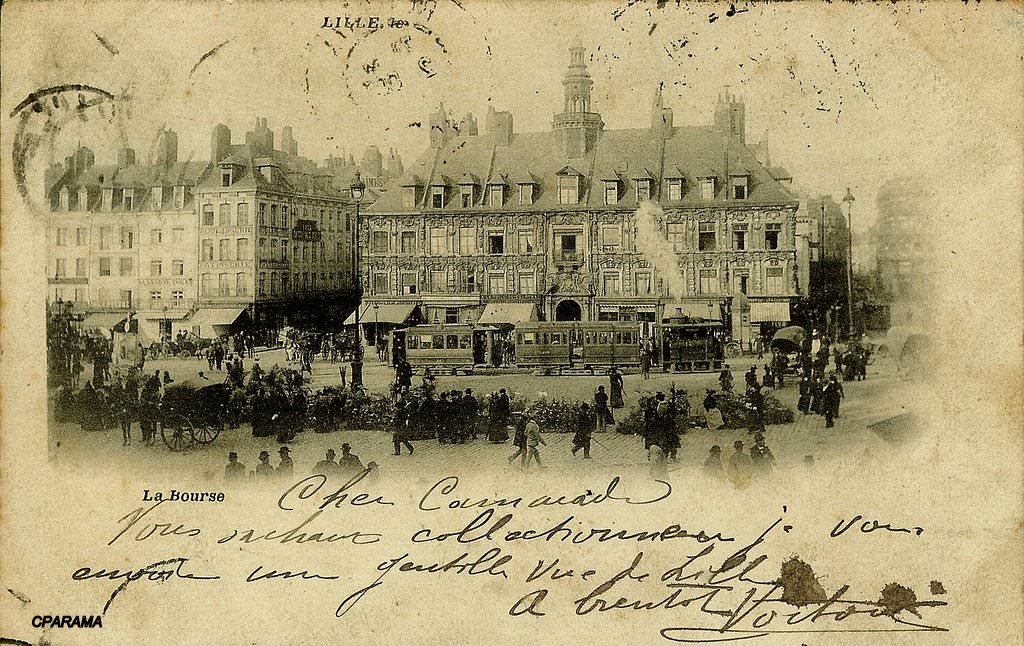 LILLE. le
La Bourse
Cher Camarade
Vous sachant collectionneur je vous
envoie une gentille Vue de Lille
A bientot
CPARAMA